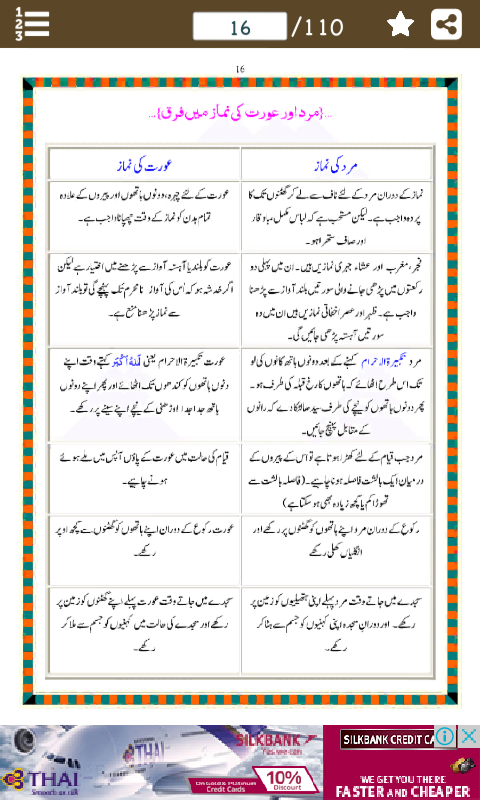 1
2
3
16
/110
16
...{مرد اور عورت کی نماز میں فرق}...
مرد کی نماز
عورت کی نماز
نماز کے دوران مرد کے لئے ناف سے لے کر گھٹنوں تک کا
پردہ واجب ہے۔ لیکن مستحب ہے کہ لباس مکمل، باوقار
اور صاف ستھرا ہو۔
عورت کے لئے چہرہ، دونوں ہاتھوں اور پیروں کے علاوہ
تمام بدن کو نماز کے وقت چھپانا واجب ہے۔
فجر، مغرب اور عشاء جہری نمازیں ہیں۔ اِن میں پہلی دو
رکعتوں میں پڑھی جانے والی سورتیں بلند آواز سے پڑھنا
واجب ہے۔ ظہر اور عصر اخفاتی نمازیں ہیں اِن میں وہ
سورتیں آہستہ پڑھی جائیں گی۔
عورت کو بلند یا آہستہ آواز سے پڑھنے میں اختیار ہے لیکن
اگر خدشہ ہو کہ اُس کی آواز نامحرم تک پہنچے گی تو بلند آواز
سے نماز پڑھنا منع ہے۔
مرد تکبیرۃ الاحرام کہنے کے بعد دونوں ہاتھ کانوں کی لو
تک اس طرح اٹھائے کہ ہاتھوں کا رخ قبلہ کی طرف ہو۔
پھر دونوں ہاتھوں کو نیچے کی طرف سیدھا لٹکا دے کہ رانوں
کے مقابل پہنچ جائیں۔
عورت تکبیرۃ الاحرام یعنی اَللهُ اَكْبَر کہتے وقت اپنے
دنوں ہاتھوں کو کندھوں تک اٹھائے اور پھر اپنے دونوں
ہاتھ جدا جدا اوڑھنی کے نیچے اپنے سینے پر رکھے۔
مرد جب قیام کے لئے کھڑا ہوتا ہے تو اس کے پیروں کے
درمیان ایک بالشت فاصلہ ہونا چاہیے۔ (فاصلہ بالشت سے
تھوڑا کم یا کچھ زیادہ بھی ہو سکتا ہے)
قیام کی حالت میں عورت کے پاؤں آپس میں ملے ہوئے
ہونے چاہیے۔
رکوع کے دوران مرد اپنے ہاتھوں کو گھٹنوں پر رکھے اور
انگلیاں کھلی رکھے
عورت رکوع کے دوران اپنے ہاتھوں کو گھٹنوں سے کچھ اوپر
رکھے۔
سجدے میں جاتے وقت مرد پہلے اپنی ہتھیلیوں کو زمین پر
رکھے۔ اور دورانِ سجدہ اپنی کہنیوں کو جسم سے ہٹا کر
رکھے۔
سجدے میں جاتے وقت عورت پہلے اپنے گھٹنوں کو زمین پر
رکھے اور سجدے کی حالت میں کہنیوں کو جسم سے ملا کر
رکھے۔
THAI
SILKBANK
Yes we can
THAI
Smooth as silk
On Gold & Platinum
Credit Cards
10%
Discount
SILKBANK CREDIT CA
WE GET YOU THERE
FASTER AND CHEAPER